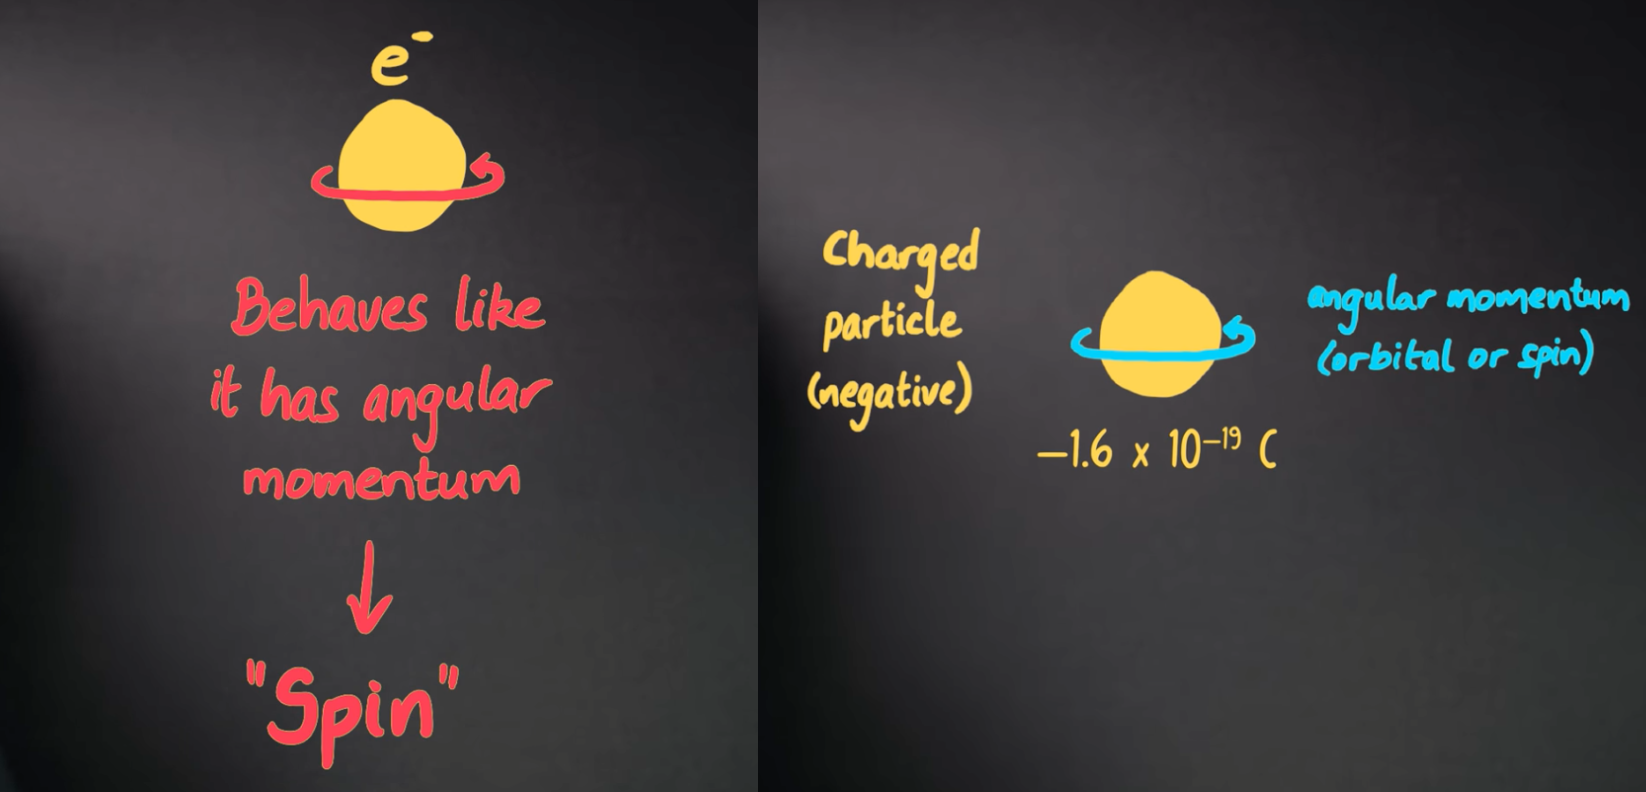 e⁻
Behaves like
it has angular
momentum
"Spin"
Charged
particle
(negative)
−1.6 x 10⁻¹⁹ C
angular momentum
(orbital or spin)